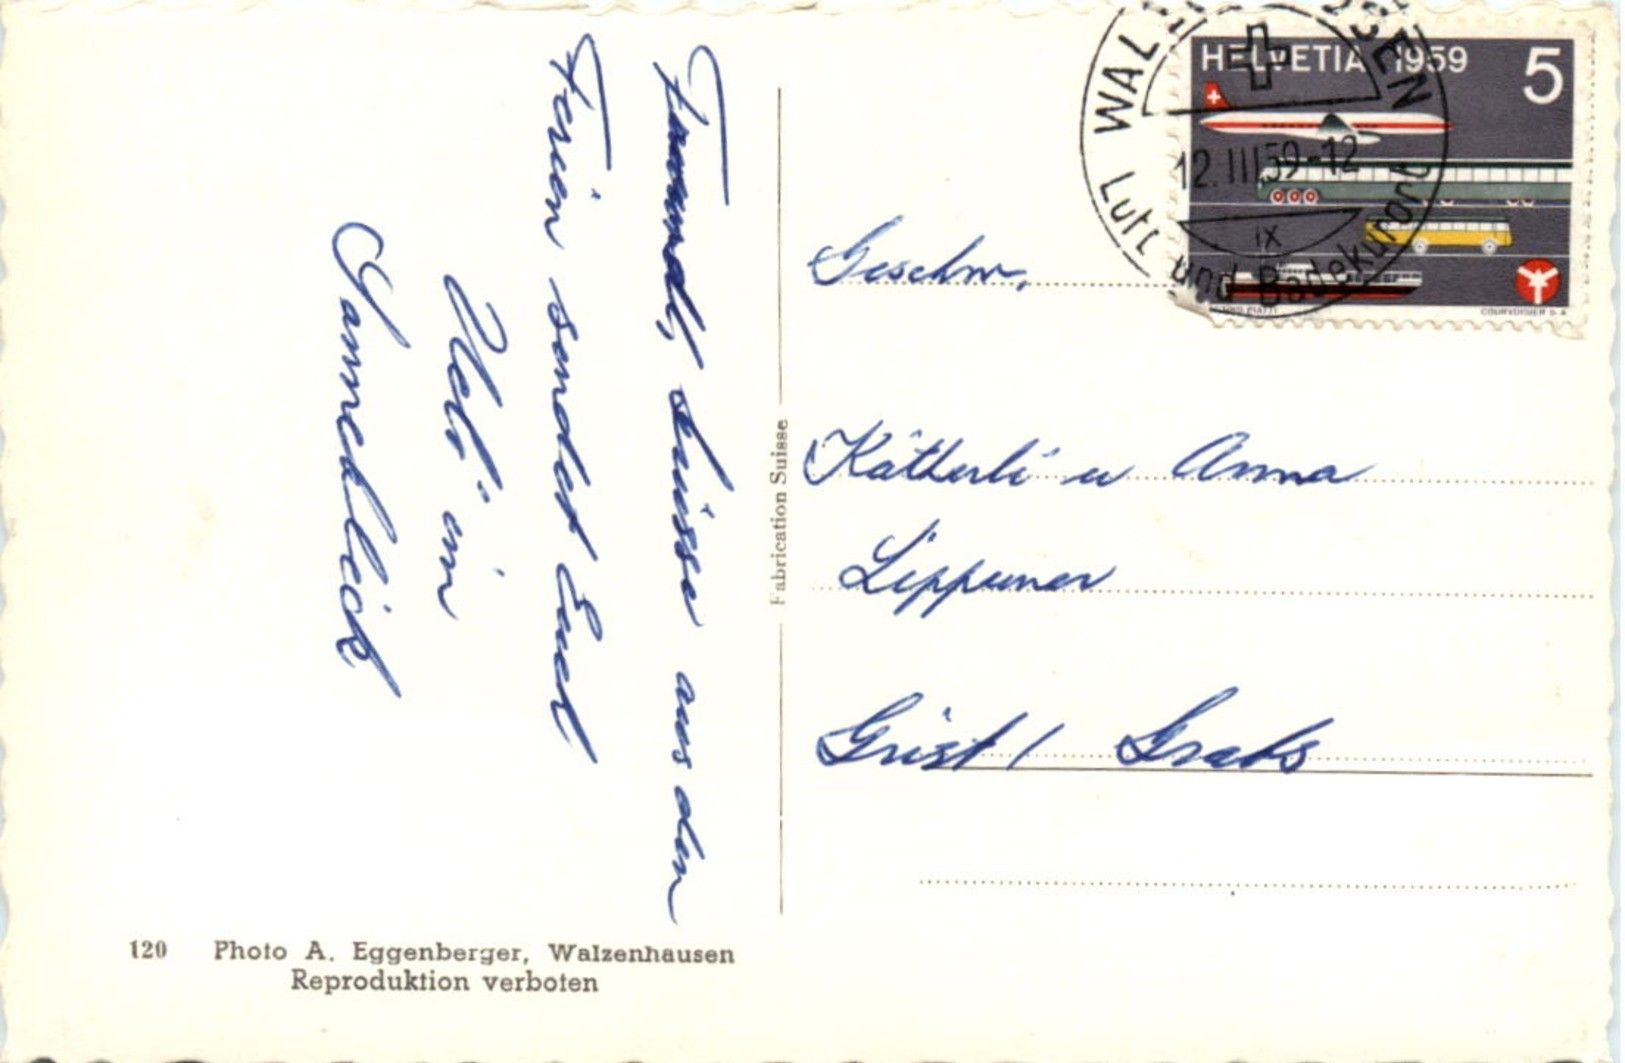 Freundl. Grüsse aus den
Ferien sendet Euch
Ueli im
Sanneblick
120 Photo A. Eggenberger, Walzenhausen
Reproduktion verboten
Fabrication Suisse
HELVETIA 1959 5
COURVOISIER S.A.
12.III.59-12
IX
Luft und Badekurort
Geschw.
Kätherli u Anna
Lippuner
Grist / Grabs